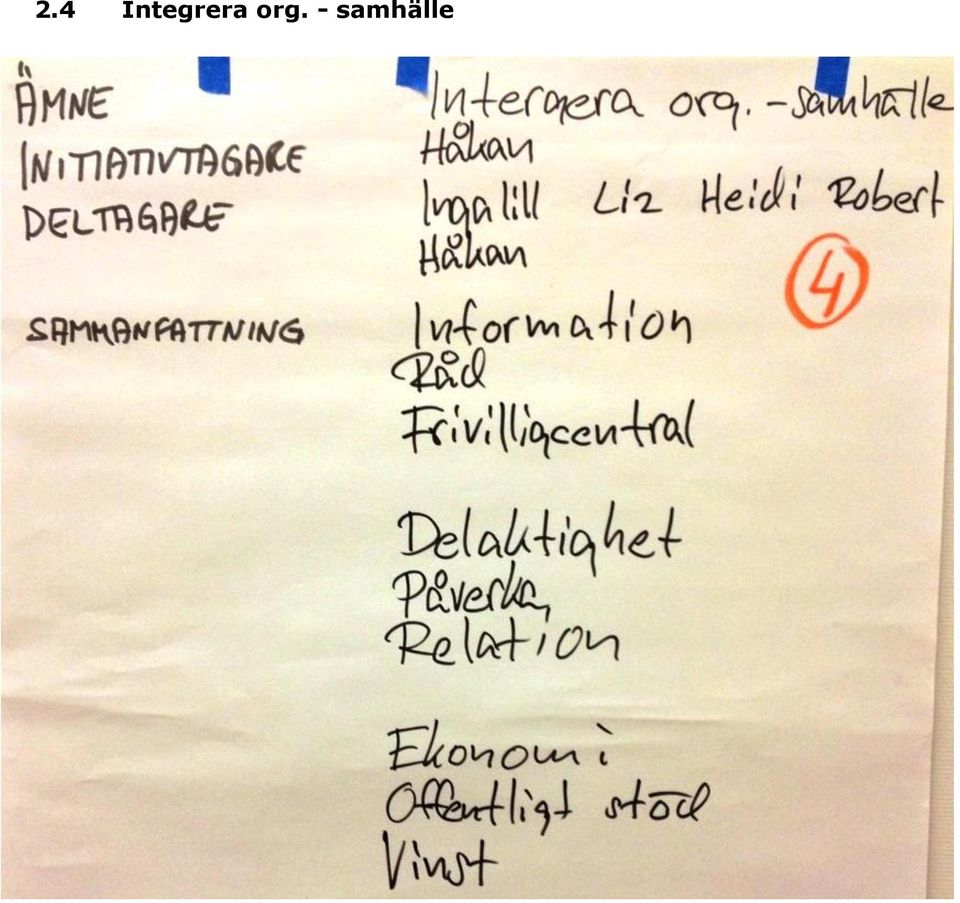 2.4 Integrera org. - samhälle
ÄMNE Intergera org. - samhälle
INITIATIVTAGARE Håkan
DELTAGARE Ingalill Liz Heidi Robert
Håkan
4
SAMMANFATTNING Information
Råd
Frivilligcentral
Delaktighet
Påverka,
Relation
Ekonomi
Offentligt stöd
Vinst